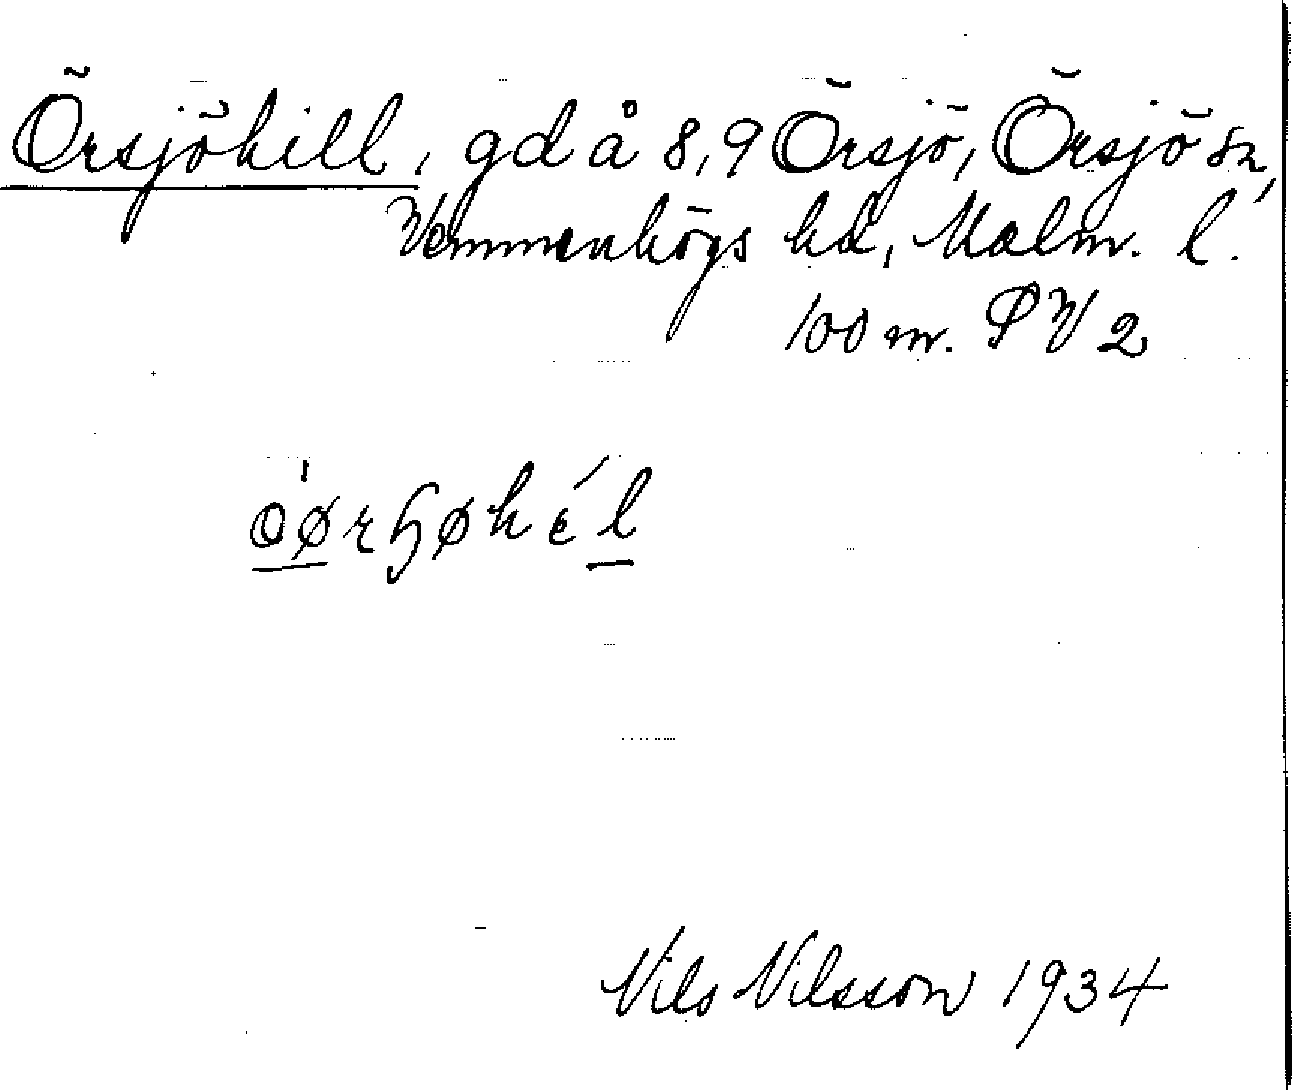 Örsjöhill, gd å 8,9 Örsjö, Örsjö sn,
Vemmenhögs hd, Malm. l.
100 m. SV 2
Nils Nilsson 1934